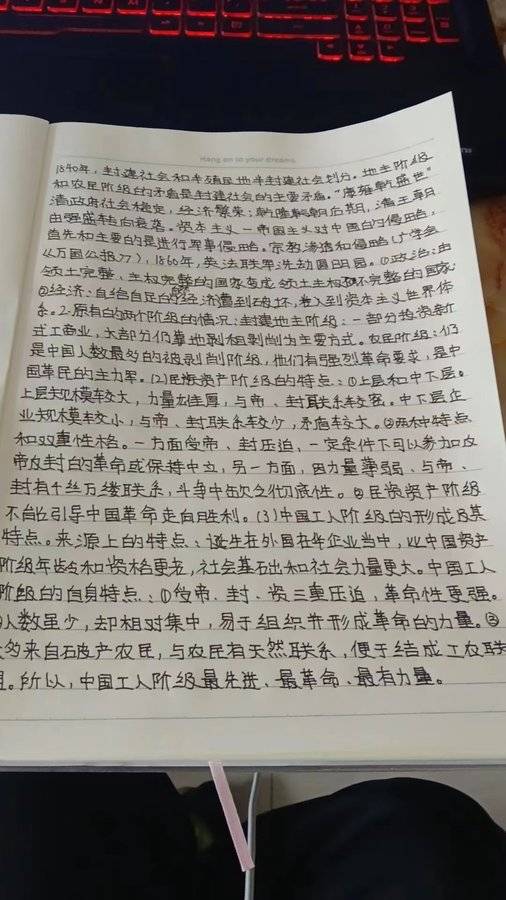 Hang on to your dreams
1840年，封建社会和半殖民地半封建社会划分。地主阶级
和农民阶级的矛盾是封建社会的主要矛盾。"康雍乾盛世"
清政府社会稳定，经济繁荣；乾隆朝后期，清王朝
由强盛转向衰落。资本主义一帝国主义对中国的侵略，
首先和主要的是进行军事侵略。宗教渗透和侵略(广学会
《万国公报》)，1860年，英法联军洗劫圆明园。①政治：由
领土完整、主权完整的国家变成领土主权不完整的国家
②经济：自给自足的经济遭到破坏，卷入到资本主义世界体
系。2.原有的两个阶级的情况：封建地主阶级：一部分投资新
式工商业，大部分仍靠地租剥削为主要方式。农民阶级：仍
是中国人数最多的被剥削阶级，他们有强烈革命要求，是中
国革民的主力军。(2)民族资产阶级的特点：①上层和中下层。
上层规模较大，力量雄厚，与帝、封联系较多。中下层企
业规模较小，与帝、封联系较少，矛盾较大。②两种特点
和双重性格。一方面受帝、封压迫，一定条件下可以参加反
帝反封的革命或保持中立，另一方面，因力量薄弱、与帝、
封有千丝万缕联系，斗争中缺乏彻底性。③民资资产阶级
不能引导中国革命走向胜利。(3)中国工人阶级的形成及其
特点。来源上的特点：诞生在外国在华企业当中，比中国资产
阶级年龄和资格更老，社会基础和社会力量更大。中国工人
阶级的自身特点：①受帝、封、资三重压迫，革命性更强。
人数虽少，却相对集中，易于组织并形成革命的力量。③
多来自破产农民，与农民有天然联系，便于结成工农联
盟。所以，中国工人阶级最先进、最革命、最有力量。